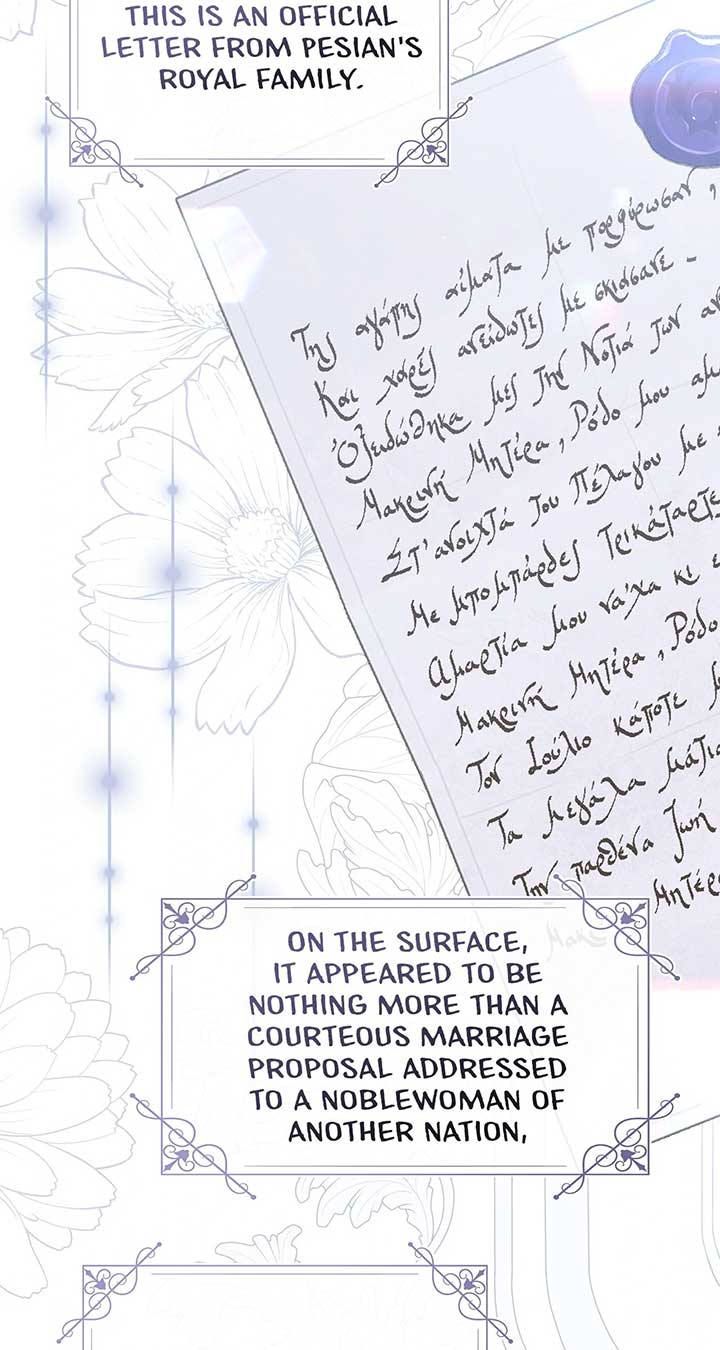 THIS IS AN OFFICIAL
LETTER FROM PESIAN'S
ROYAL FAMILY.
Της αγάπης αίματα με πορφύρωσαν
Και χαρές ανείδωτες με σκιάσανε -
Οξειδώθηκα μες την Νοτιά των
Μακρινή Μητέρα, Ρόδο μου
Στ' ανοιχτά του Πέλαγου με
Με μπομπάρδες Τρικάταρτες
Αμαρτία μου να'χα κι
Μακρινή Μητέρα, Ρόδο
Τον Ιούλιο κάποτε
Τα μεγάλα μάτια
Την παρθένα ζωή
Μητέρ
ON THE SURFACE,
IT APPEARED TO BE
NOTHING MORE THAN A
COURTEOUS MARRIAGE
PROPOSAL ADDRESSED
TO A NOBLEWOMAN OF
ANOTHER NATION,